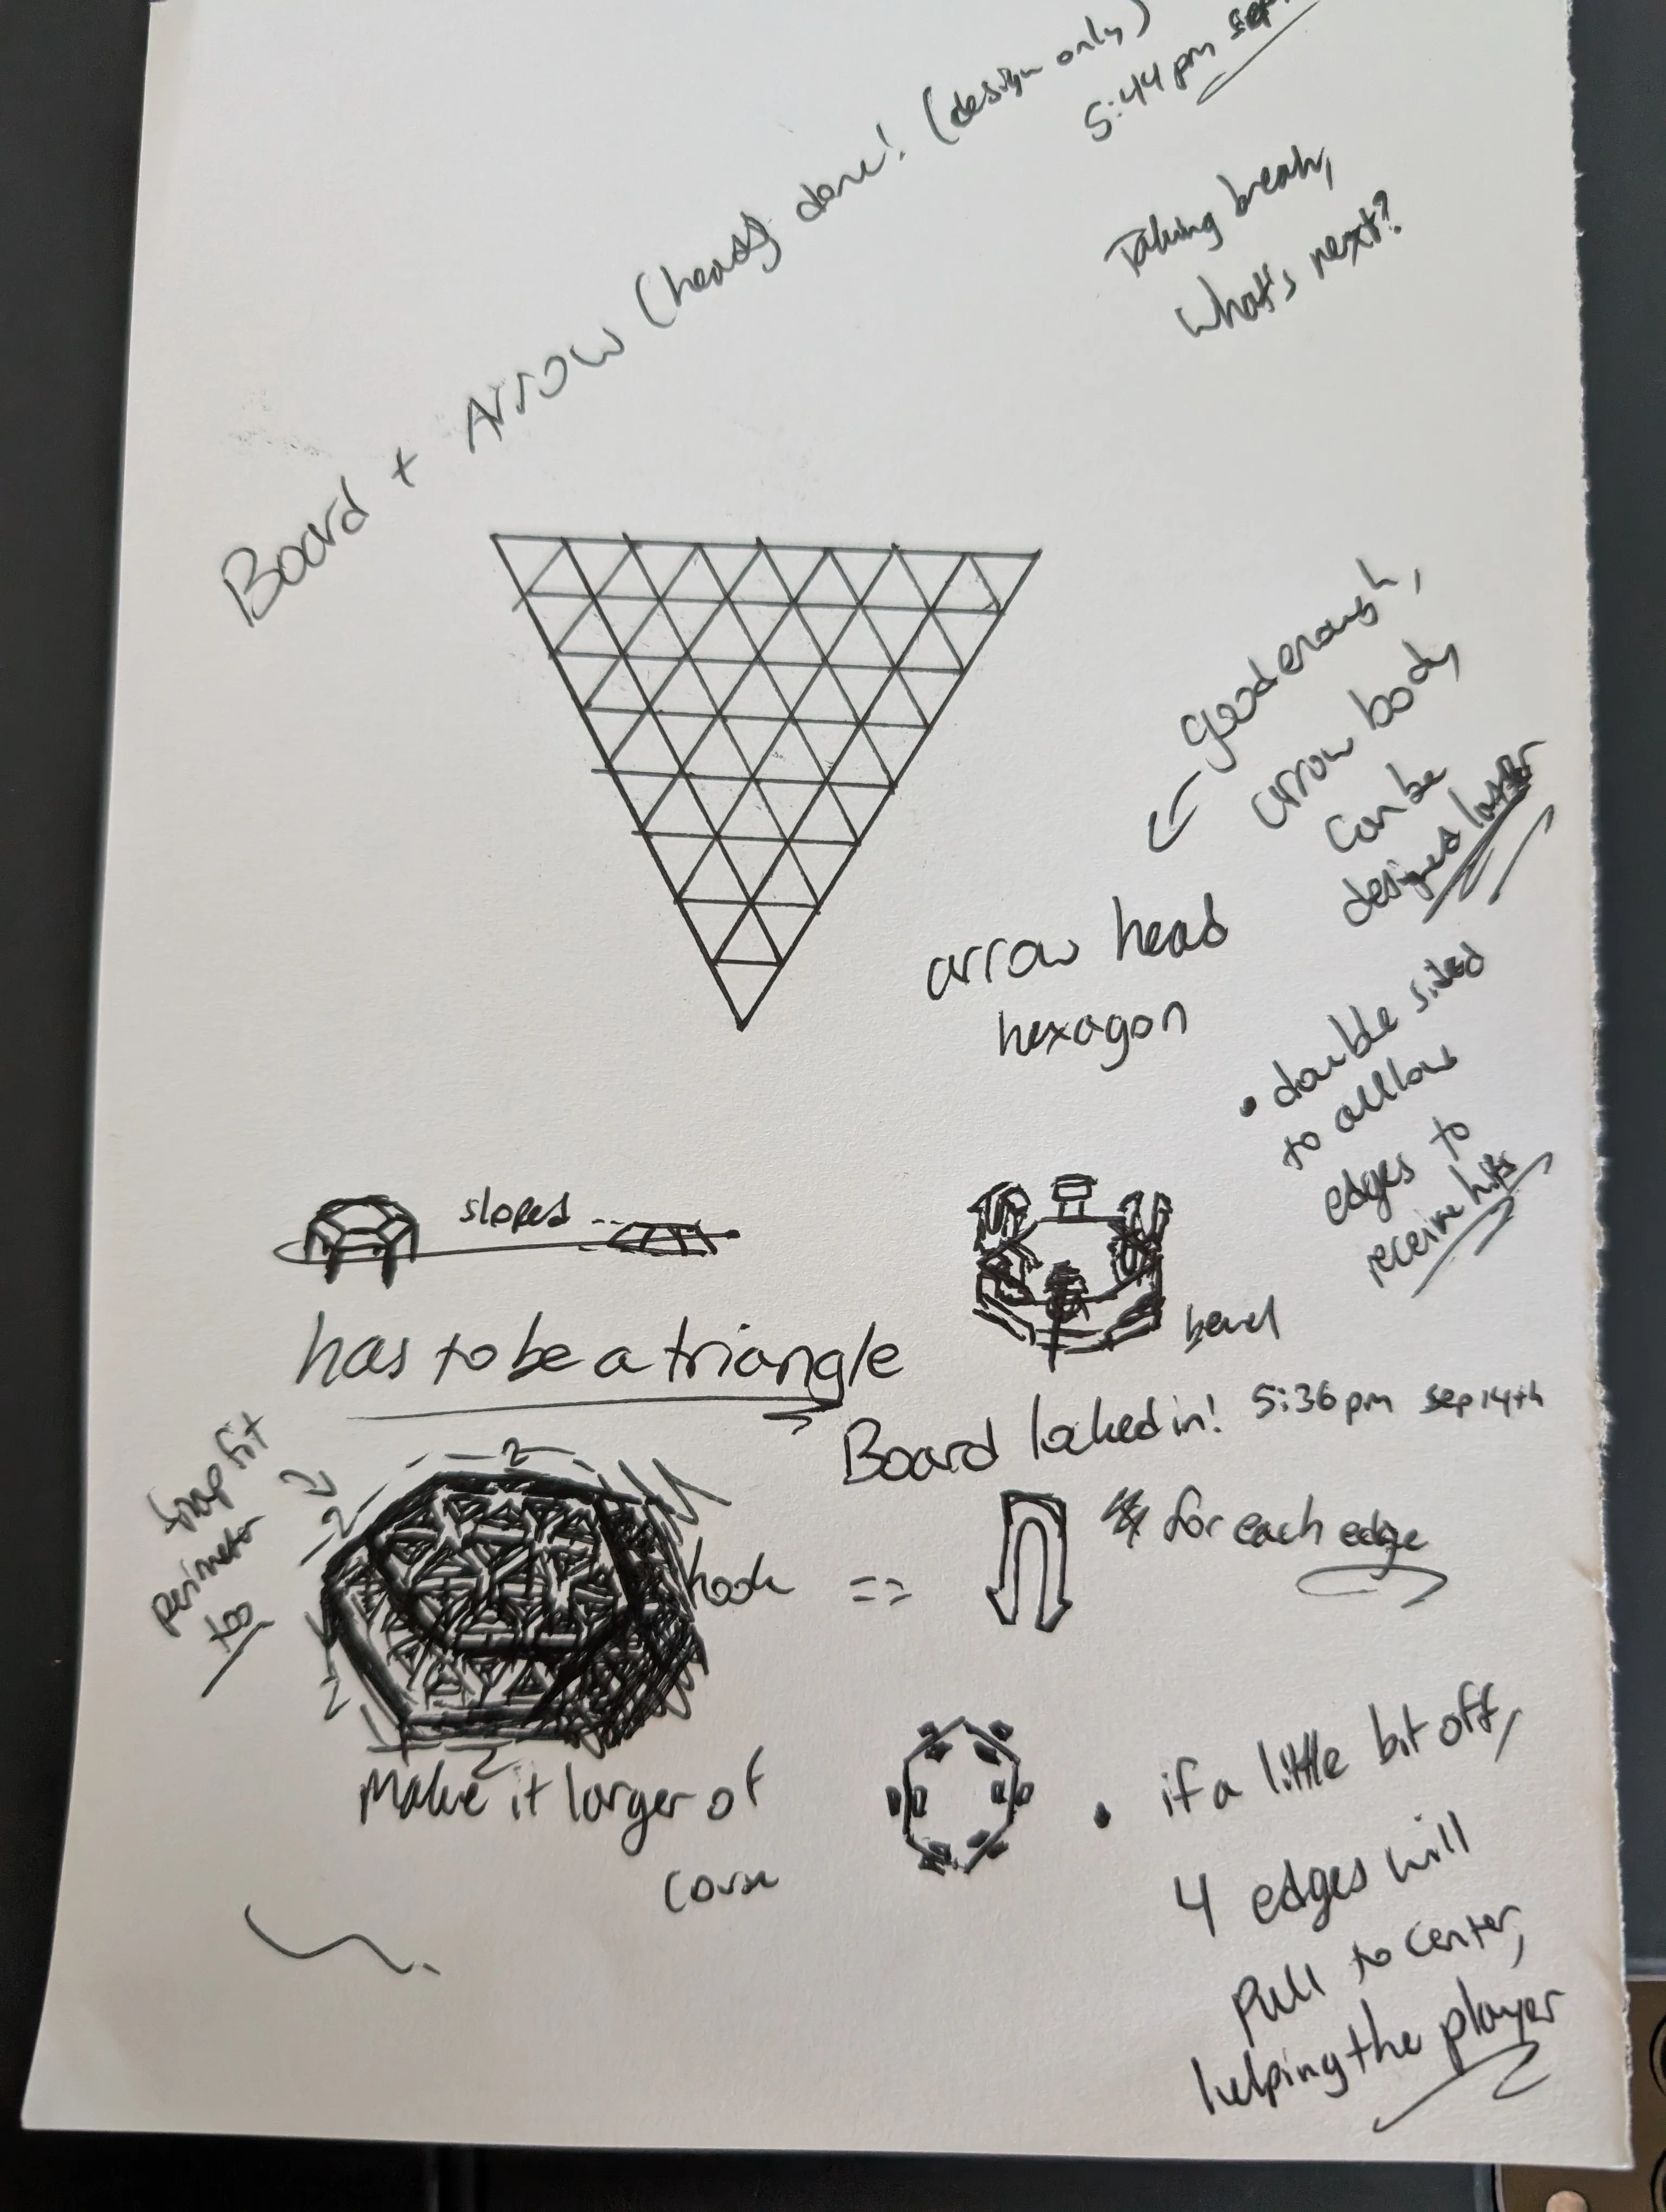 Board + Arrow (heads) done! (design only)
5:44 pm sep
Taking break,
What's next?
good enough,
arrow body
can be
designed later
arrow head
hexagon
• double sided
to allow
edges to
receive hits
sloped --
bevel
has to be a triangle
Board locked in! 5:36 pm sep 14th
snap fit
perimeter
too
2
2
2
2
hook == for each edge
Make it larger of
corse
• if a little bit off,
4 edges will
pull to center,
helping the player